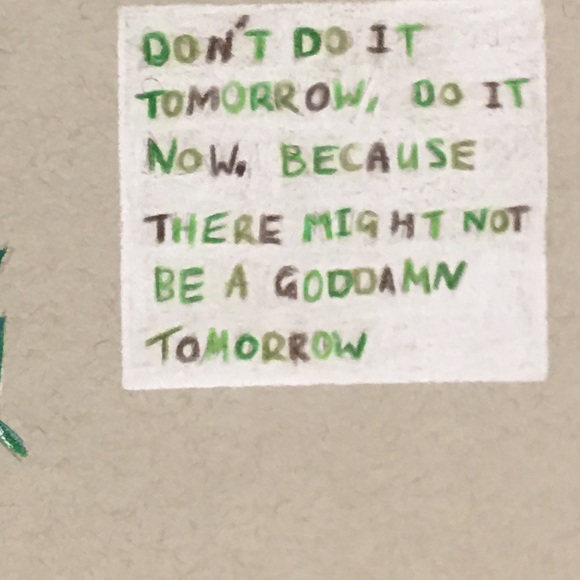 DON'T DO IT
TOMORROW, DO IT
NOW. BECAUSE
THERE MIGHT NOT
BE A GODDAMN
TOMORROW